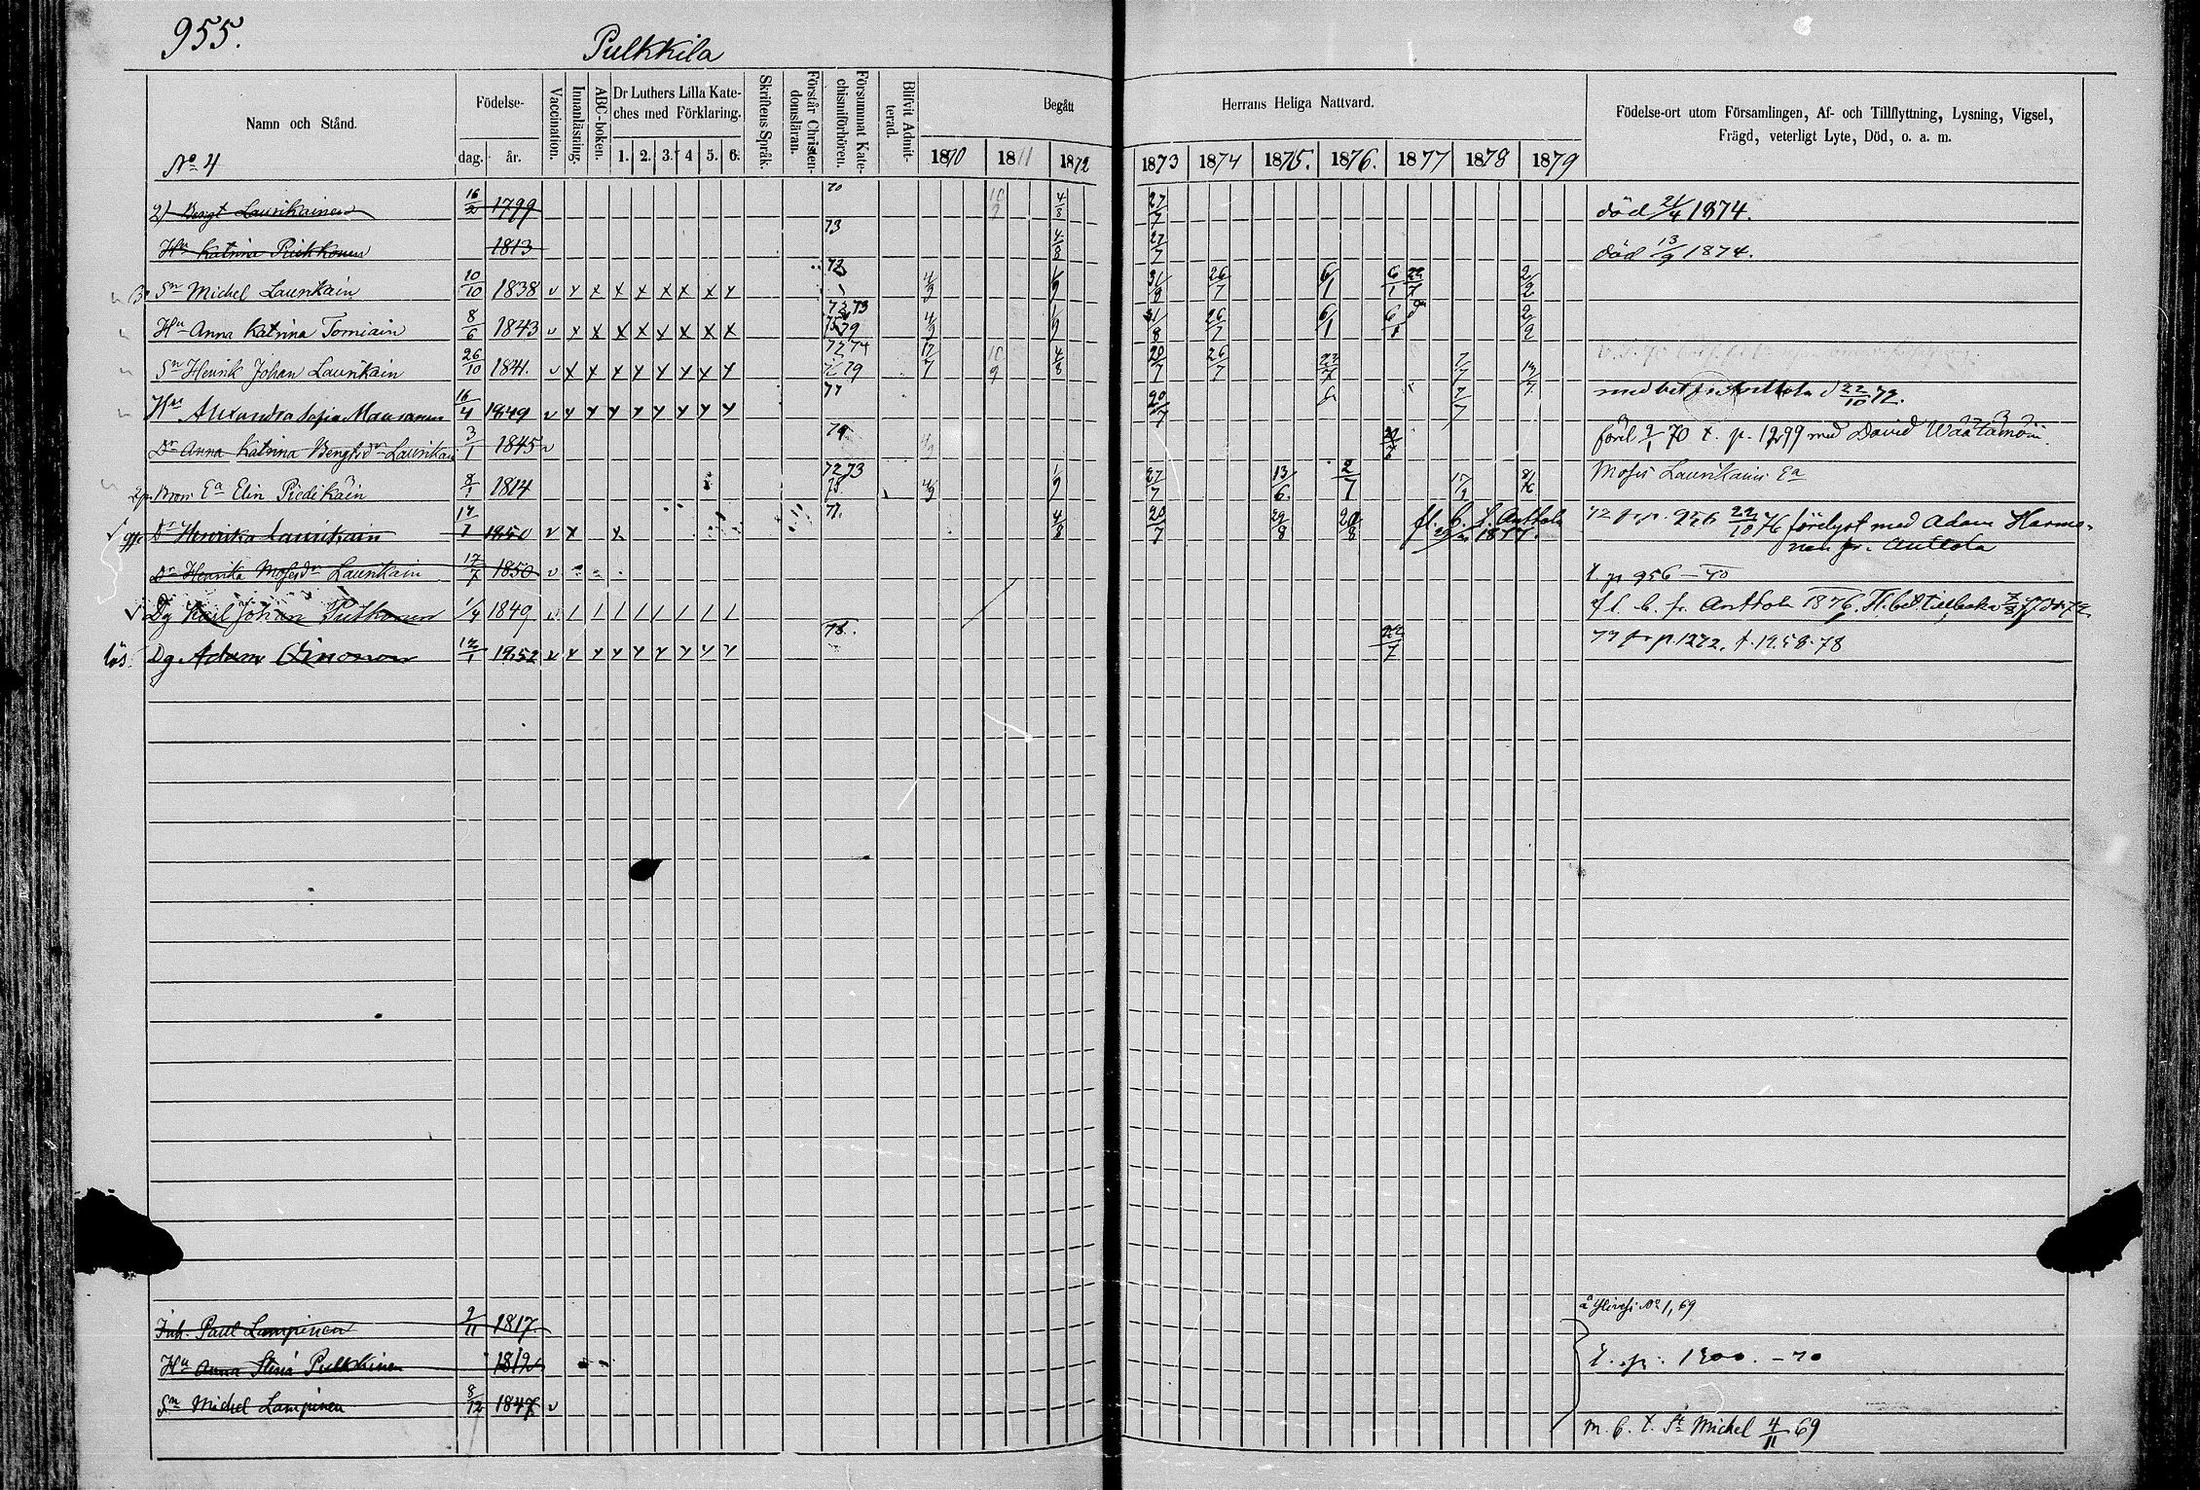 955.
Pulkkila
Namn och Stånd.
No 4
Födelse-
dag. år.
Vaccination.
Innanläsning.
ABC-boken.
Dr Luthers Lilla Kate-
ches med Förklaring.
1. 2. 3. 4 5. 6.
Skriftens Språk.
Förstår Christen-
domsläran.
Försummat Kate-
chismiförhören.
Blifvit Admit-
terad.
Begått Herrans Heliga Nattvard.
1870 1871 1872 1873 1874 1875. 1876. 1877 1878 1879
Födelse-ort utom Församlingen, Af- och Tillflyttning, Lysning, Vigsel,
Frägd, veterligt Lyte, Död, o. a. m.
2) Bengt Laurikainen 16/2 1799 70 10/9 4/8 27/7 död 21/4 1874.
Hu Katrina 1813 73 4/8 27/7 död 13/9 1874.
Sn Michel Laurikain 10/10 1838 v x x x x x x x x 72 4/9 1/9 31/8 26/7 6/1 6/1 22/7 2/2
Hu Anna Katrina Torniain 8/6 1843 v x x x x x x x x 72 73 75 79 4/9 1/9 31/8 26/7 6/1 6/1 2/2
Sn Henrik Johan Laurikain 26/10 1841. v x x x x x x x x 72 74 79 17/7 10/9 4/8 20/7 26/7 23/7 7/7 13/7
Hu Alexandra Sofia 16/4 1849 v x x x x x x x x 77 20/7 7/7 med bet fr Anttola d 22/10 72.
Dr Anna Katrina Bengtsdr Laurikain 3/1 1845 v 79 förel 2/1 70 t. p. 1299 med David Wäätämöin.
Enka Elin Piedikäin 8/1 1814 72 73 75. 4/9 1/9 27/7 13/6. 2/7 17/2 8/6 Moses Laurikains Ea
Dr Henrika Laurikain 17/7 1850 v x x 77. 4/8 20/7 29/8 20/8 fl. b. t. Anttola 1877. 72 fr. p. 956 22/10 76 förelyst med Adam Harmo-
nen fr. Anttola
Dr Henrika Mosesdr Laurikain 17/7 1850 v t. p 956 – 70
Dg Karl Johan Putkonen 1/4 1849 v / / / / / / / / fl. b. fr. Anttola 1876.
lös. Dg Adam 12/1 1852 v x x x x x x x x 78. 22/7 77 fr p. 1272. t. 1258. 78
å Ylivesi No 1, 69
Inh. Paul Lampinen 9/11 1817.
Hu Anna Stina Pulkkinen 1819 t. p. 1300. – 70
Sn Michel Lampinen 8/12 1847 v
m. b. t. St Michel 4/11 69